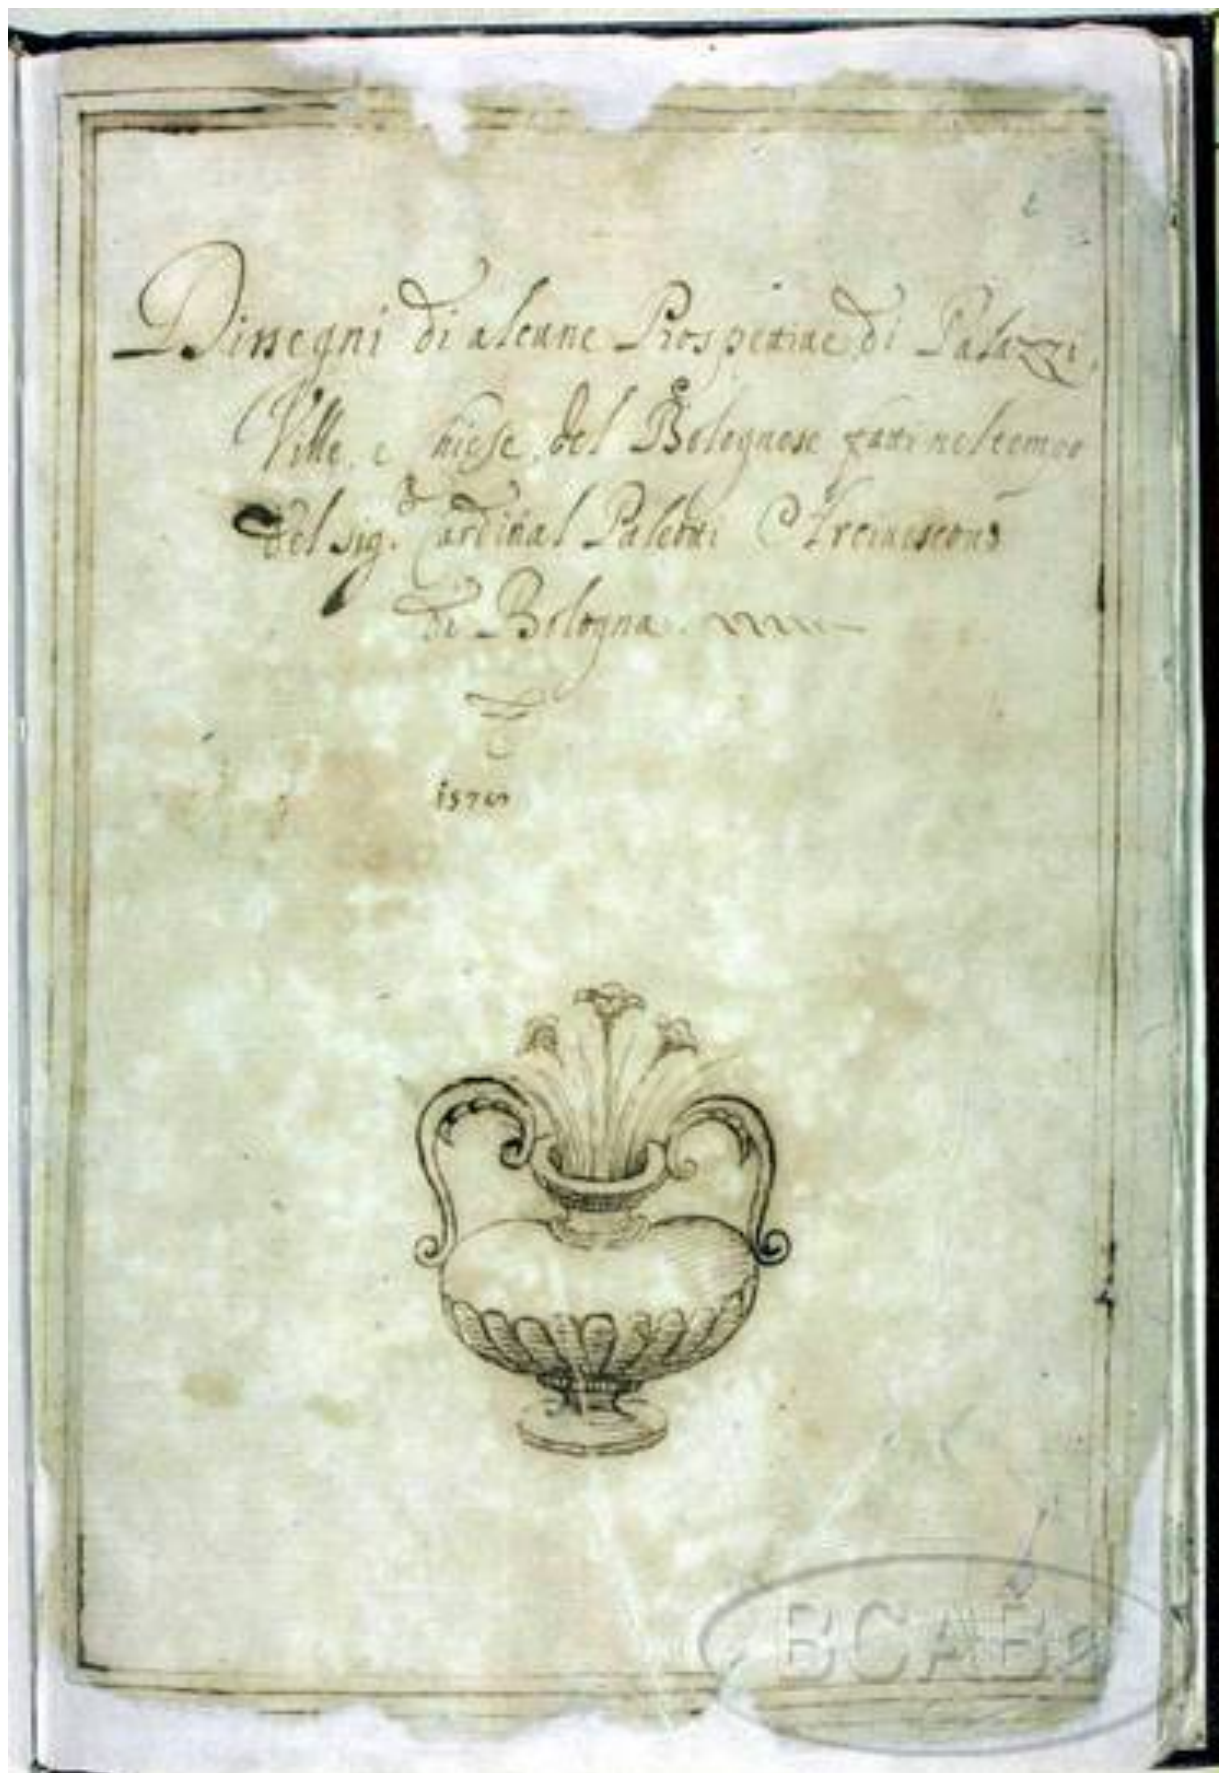 Dissegni di alcune Prospettive di Palazzi,
Ville, e Chiese, del Bolognese fatti nel tempo
del sig.r Cardinal Paleotti Arcivescovo
di Bologna.
BCABo